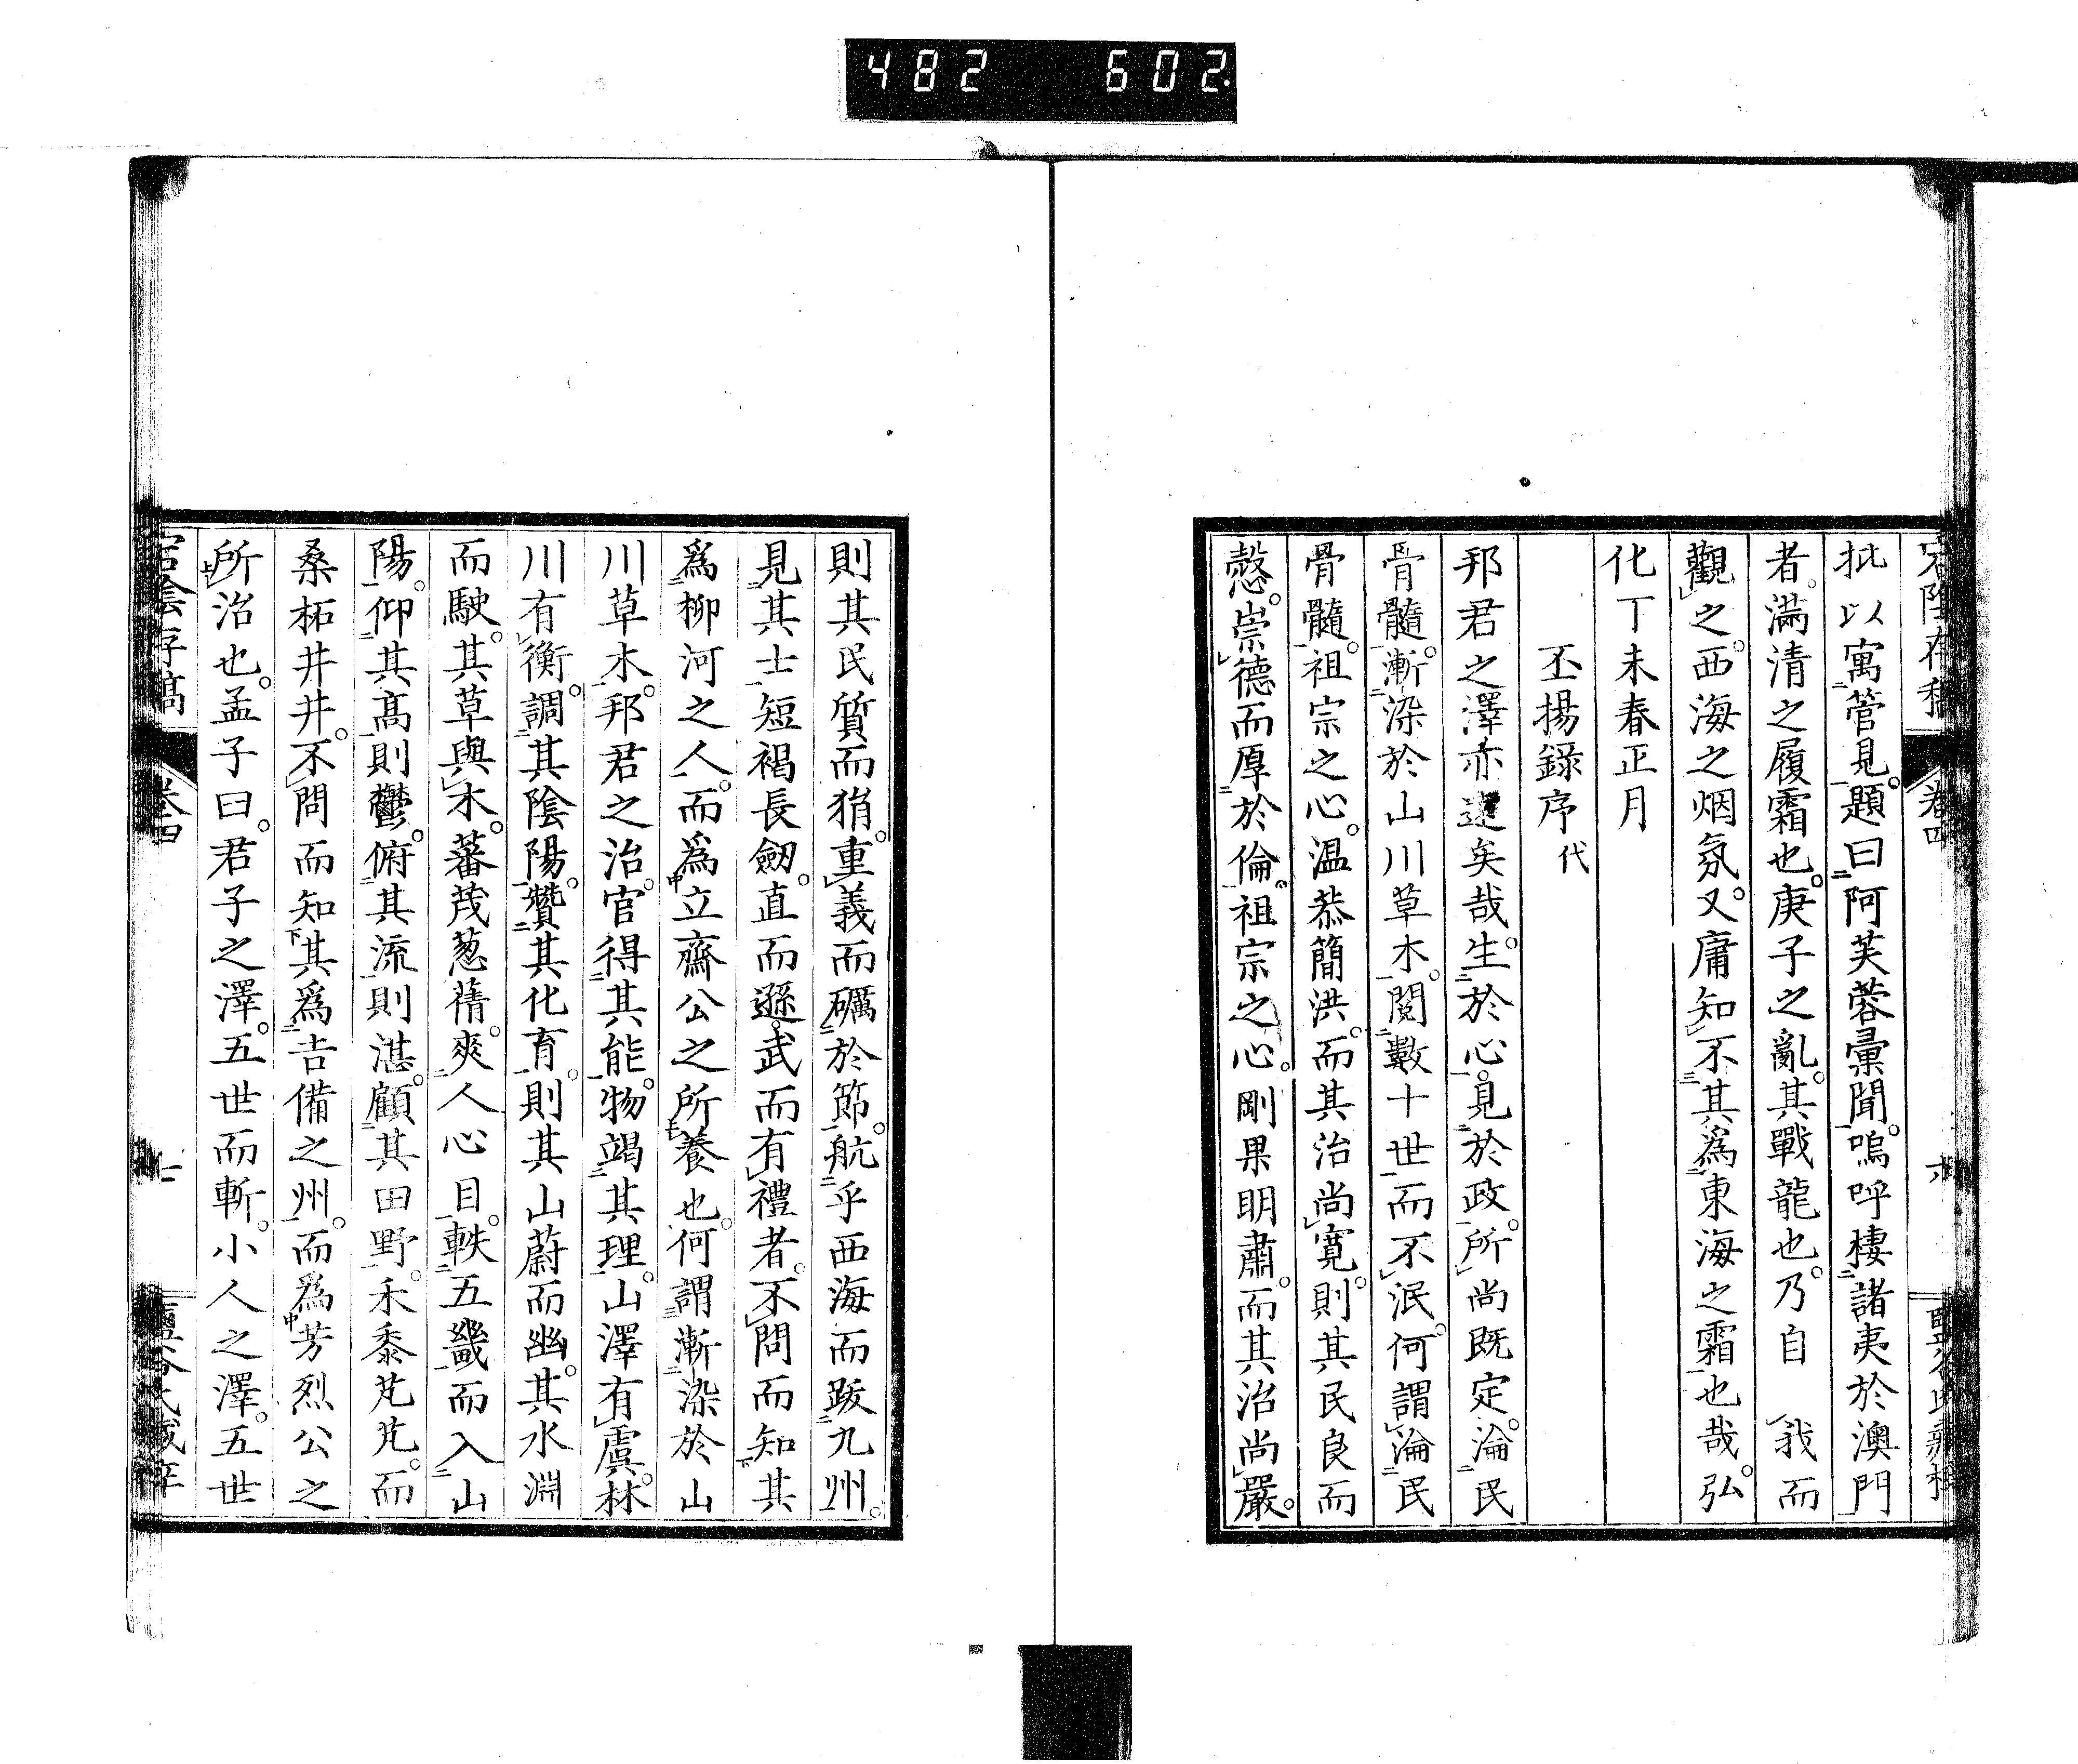 482 602
宕陰存稿 卷四 六
批以寓管見。題曰阿芙蓉彙聞。嗚呼棲諸夷於澳門
者。滿清之履霜也。庚子之亂。其戰龍也。乃自 我而
觀之。西海之烟氛。又庸知不其為東海之霜也哉。弘
化丁未春正月
丕揚錄序 代
邦君之澤亦遠矣哉。生於心。見於政。所尚既定。淪民
骨髓。漸染於山川草木。閱數十世而不泯。何謂淪民
骨髓。祖宗之心。温恭簡洪。而其治尚寛。則其民良而
愨。崇德而厚於倫。祖宗之心。剛果明肅。而其治尚嚴。
則其民質而狷。重義而礪於節。航乎西海而跋九州。
見其士短褐長劒。直而遜。武而有禮者。不問而知其
爲柳河之人。而爲立齋公之所養也。何謂漸染於山
川草木。邦君之治。官得其能。物竭其理。山澤有虞。林
川有衡。調其陰陽。贊其化育。則其山蔚而幽。其水淵
而駛。其草與木。蕃茂葱蒨。爽人心目。軼五畿而入山
陽。仰其高則鬱。俯其流則湛。顧其田野。禾黍芃芃。而
桑柘井井。不問而知其爲吉備之州。而爲芳烈公之
所治也。孟子曰。君子之澤。五世而斬。小人之澤。五世
宕陰存稿 卷四 七